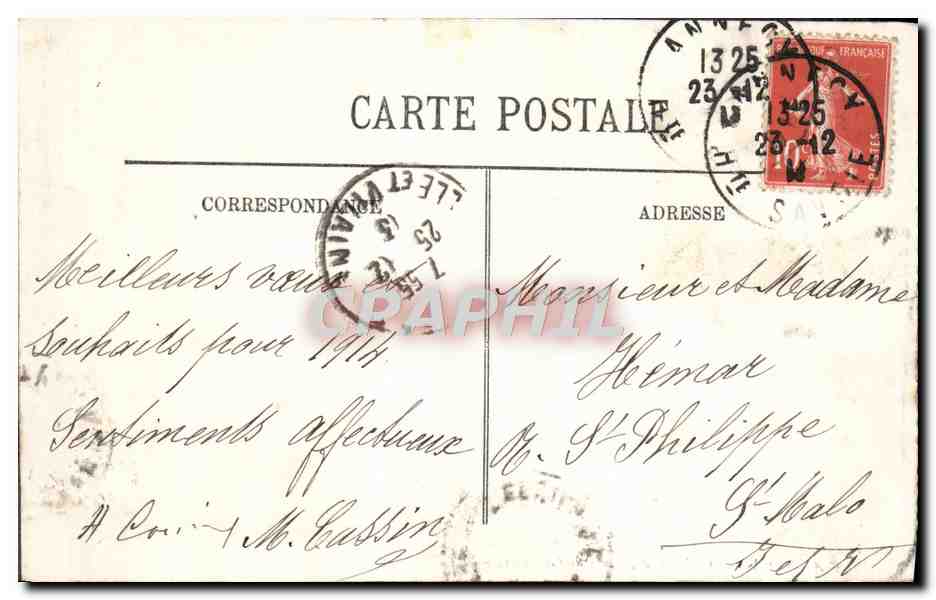 CARTE POSTALE
CORRESPONDANCE
Meilleurs vœux et
souhaits pour 1914
Sentiments affectueux
M. Cassin
ADRESSE
Monsieur et Madame
Hémar
R. St Philippe
St-Malo
I et V
ANNECY
13 25
23-12
ANNECY
13 25
23-12
Hte SAVOIE
REPUBLIQUE FRANÇAISE
10c
POSTES
ILLE ET VILAINE
7 55
25
12
13
CPAPHIL